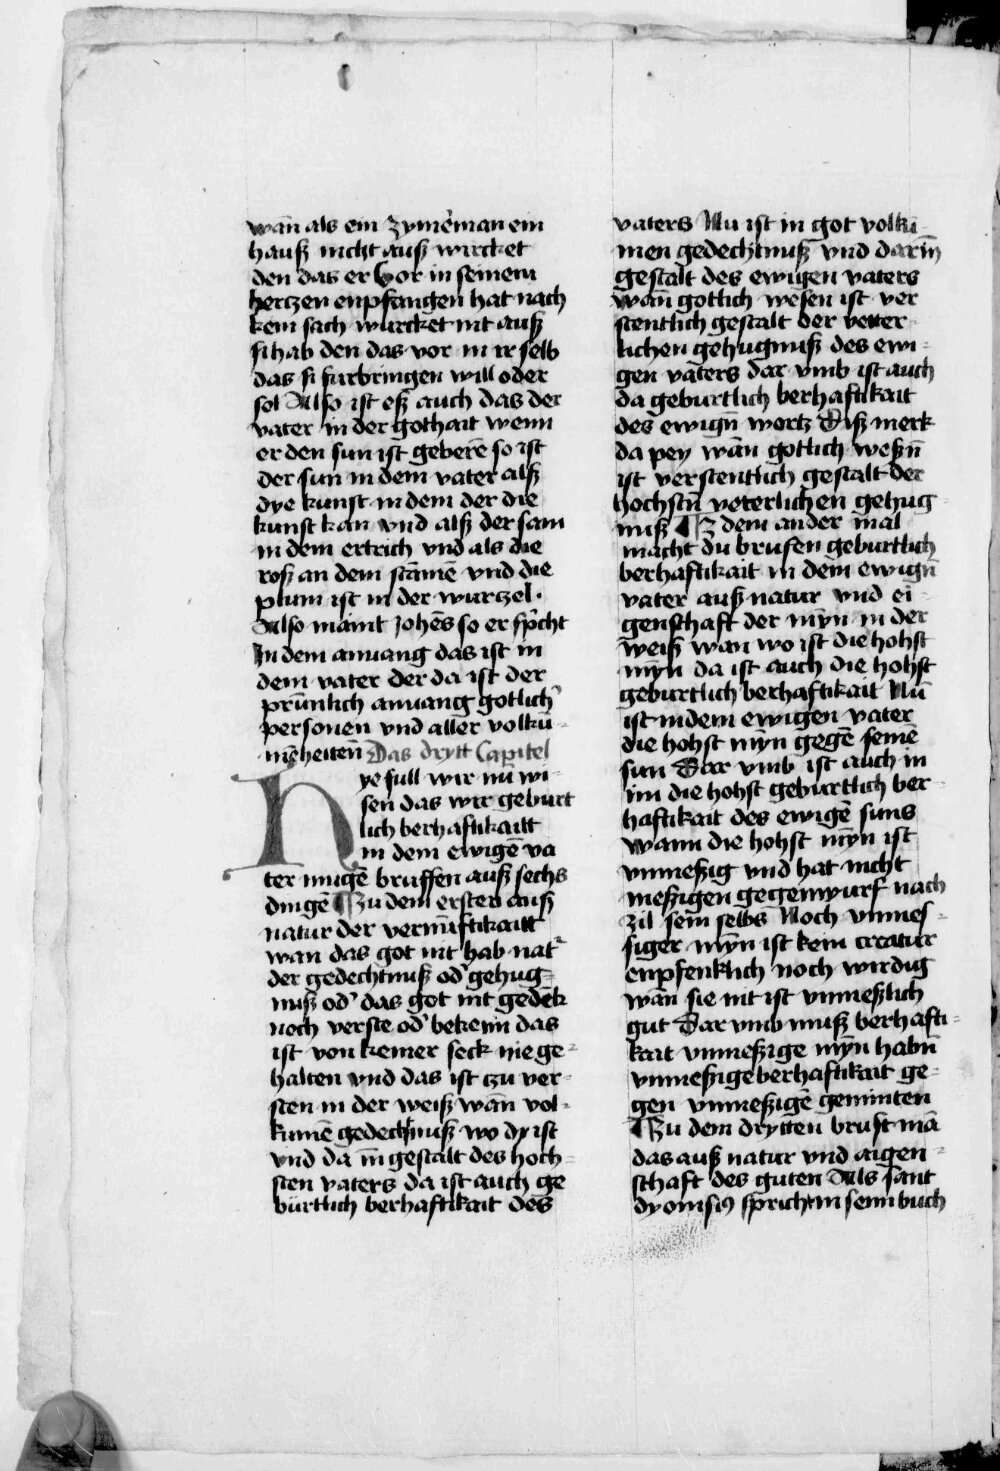 wān als ein zymēman ein
hauß nicht auß wircket
den das er vor in seinem
hertzen enpfangen hat nach
kein sach wurcket nit auß
si hab den das vor in ir selb
das si furbringen will oder
sol Also ist eß auch das der
vater in der gothait wenn
er den sun ist geberē so ist
der sun in dem vater alß
dye kunst in dem der die
kunst kan vnd alß der sam
in dem ertrich vnd als die
roß an dem stāmē vnd die
plum ist in der wurtzel ·
Also maint Johēs so er sp̄cht
In dem anuang das ist in
dem vater der da ist der
prūnlich anuang gotlich̛
personen vnd aller volkū-
mēheiten̄ Das drytt Capitel
Hye sull wir nu wi-
sen das wir geburt
lich berhaftikaitt
in dem ewigē va
ter mugē bruffen auß sechs
dingē ¶ Zu dem ersten auß
natur der vernūftikaitt
wan das got nit hab nat᷑
der gedechtnuß od̛ gehug-
nuß od̛ das got nit gedēk
noch verste od̛ bekenn das
ist von keiner seck nie ge-
halten vnd das ist zu ver-
sten in der weiß wān vol-
kumē gedechtnuß wo dy ist
vnd da in̄ gestalt des hoch-
sten vaters da ist auch ge
bürtlich berhaftikait des
vaters Nu ist in got volkū-
men gedechtnuß vnd darin̄
gestalt des ewigen vaters
wān gotlich wesen ist ver
stentlich gestalt der vetter-
lichen gehugnuß des ewi-
gen vaters dar vmb ist auch
da geburtlich berhaftikait
des ewign̄ wortz Diß merk
da pey wān gotlich weßn̄
ist verstentlich gestalt der
hochstn̄ veterlichen gehug
nuß ¶ Z dem ander mal
macht du brufen geburtlich
berhaftikait in dem ewign̄
vater auß natur vnd ei-
genschaft der myn̄ in der
weiß wan wo ist die hohst
myn̄ da ist auch die hohst
geburtlich berhaftikait Nū
ist in dem ewigen vater
die hohst myn̄ gegē seinē
sun Dar vmb ist auch in
im die hohst geburtlich ber-
haftikait des ewigē suns
wann die hohst myn̄ ist
vnmeßig vnd hat nicht
meßigen gegenwurf nach
zil sein selbs Noch vnmes-
siger myn̄ ist kein creatur
enpfenklich noch wirdig
wān sie nit ist vnmeßlich
gut Dar vmb muß berhafti-
kait vnmeßige myn̄ habn̄
vnmeßige berhaftikait ge-
gen vnmeßigē geminten
¶ Zu dem drytten bruft mā
das auß natur vnd aigen-
schaft des guten Als sant
dyonisi⁹ spricht in seim buch